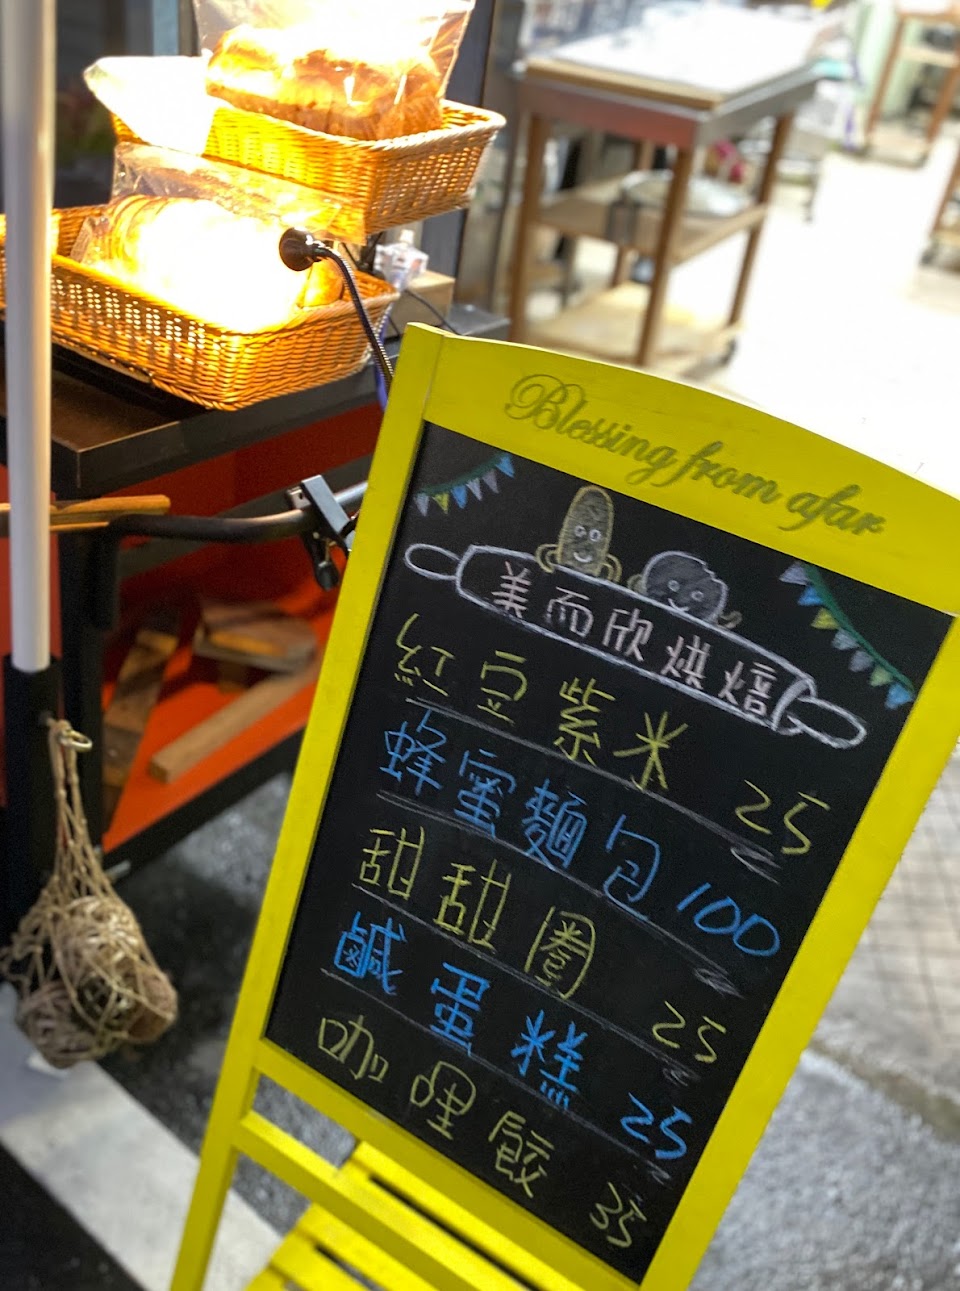 Blessing from afar
美而欣烘焙
紅豆紫米 25
蜂蜜麵包 100
甜甜圈 25
鹹蛋糕 25
咖哩餃 35